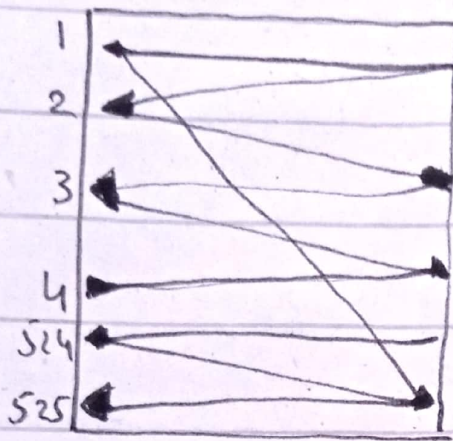 1
2
3
4
524
525